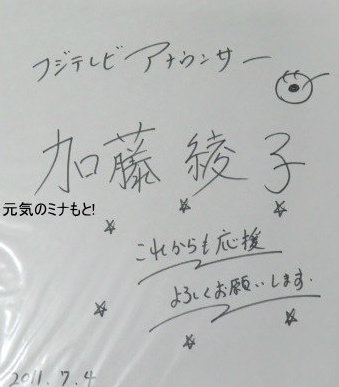 フジテレビ アナウンサー
加藤 綾子
元気のミナもと!
これからも応援
よろしくお願いします.
2011.7.4